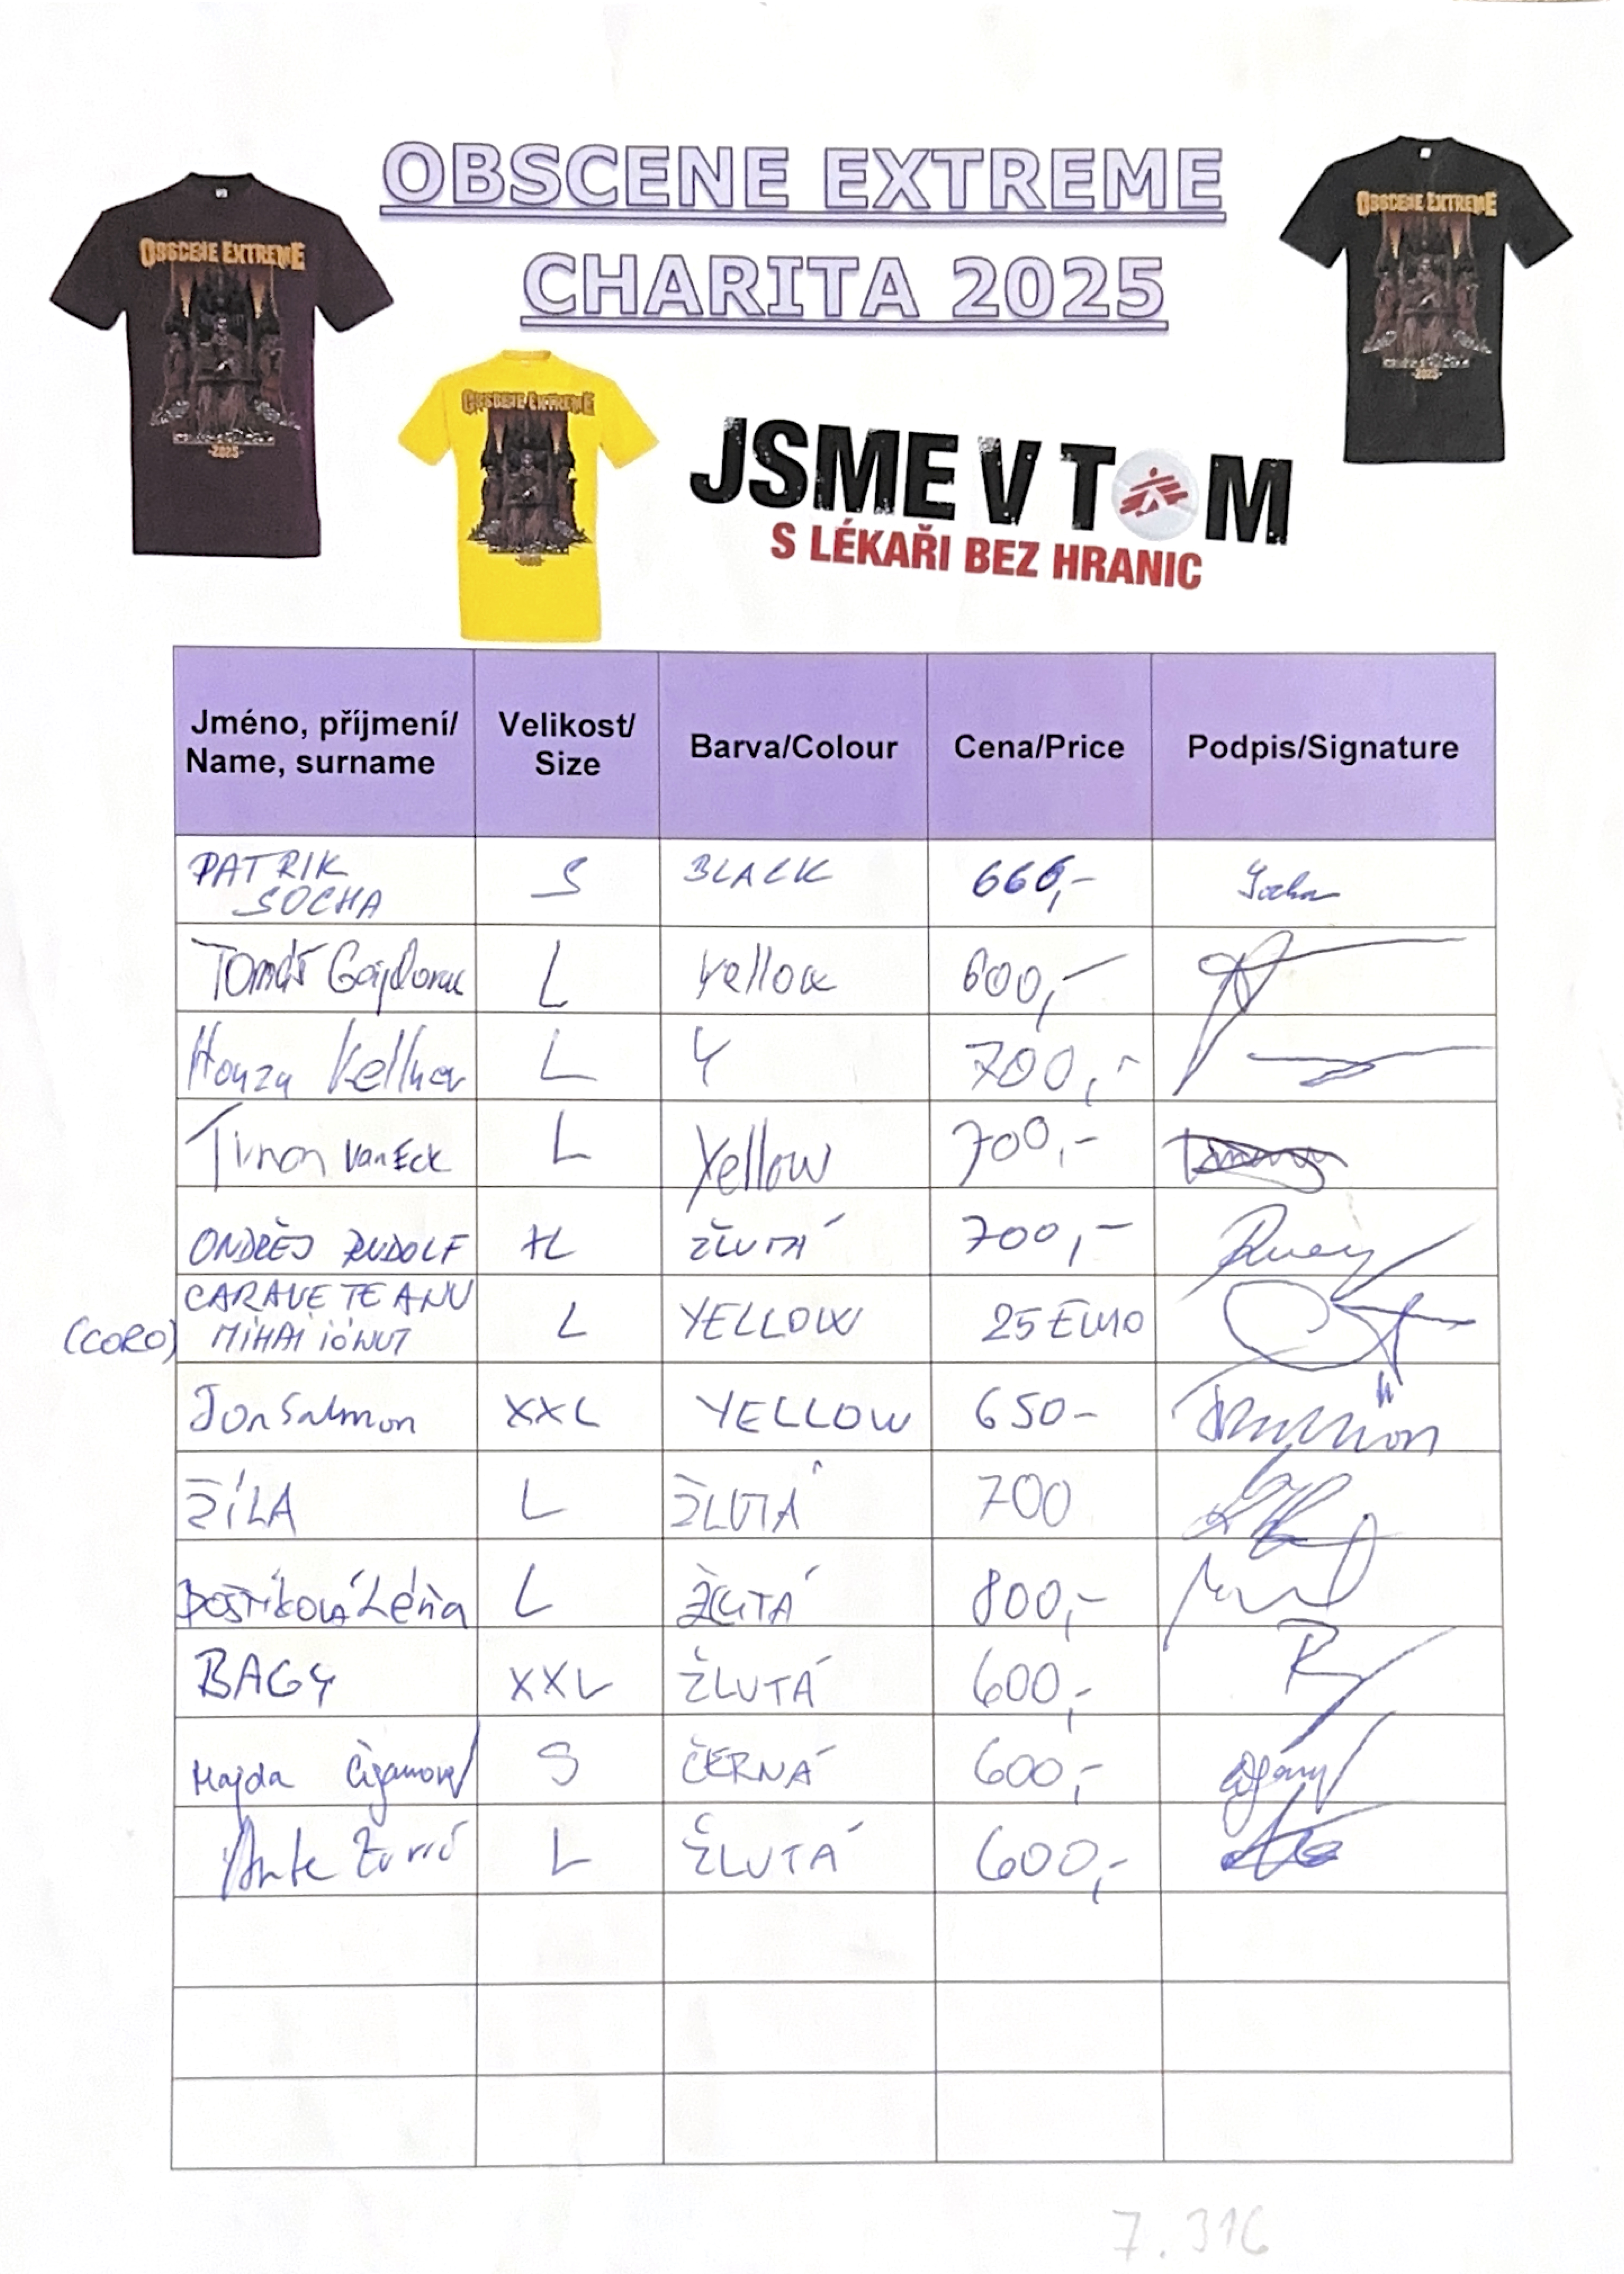 OBSCENE EXTREME
CHARITA 2025
OBSCENE EXTREME
-2025-
OBSCENE EXTREME
OBSCENE EXTREME
-2025-
JSME V TOM
S LÉKAŘI BEZ HRANIC
Jméno, příjmení/ Name, surname Velikost/ Size Barva/Colour Cena/Price Podpis/Signature
PATRIK SOCHA S BLACK 666,- Socha
Tomáš L Yellow 600,-
Honza Kellner L Y 700,-
Timon Van Eck L Yellow 700,-
ONDŘEJ RUDOLF XL ŽLUTÁ 700,-
(CORO) CARAVETEANU MIHAI IONUT L YELLOW 25 EURO
Jon Salmon XXL YELLOW 650-
ŽÍLA L ŽLUTÁ 700
Léňa L ŽLUTÁ 800,-
BAGY XXL ŽLUTÁ 600,-
Majda S ČERNÁ 600,-
Ante L ŽLUTÁ 600,-
7.316